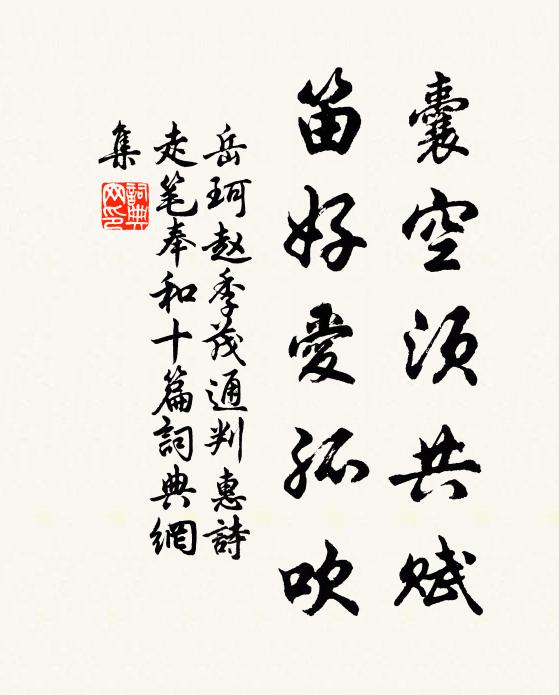 囊空須共賦
笛好愛孤吹
岳珂赵季茂通判惠詩
走笔奉和十篇詞典網
集
詞典
网印